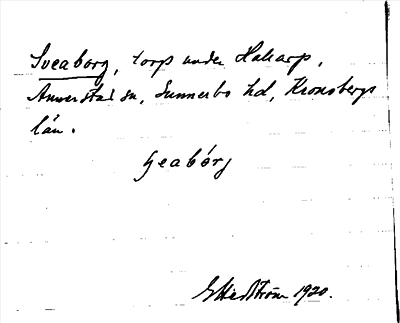 Sveaborg, torp under Hakarp,
Annerstad sn, Sunnerbo hd, Kronobergs
län.
sveabórj
G Hedström 1920.